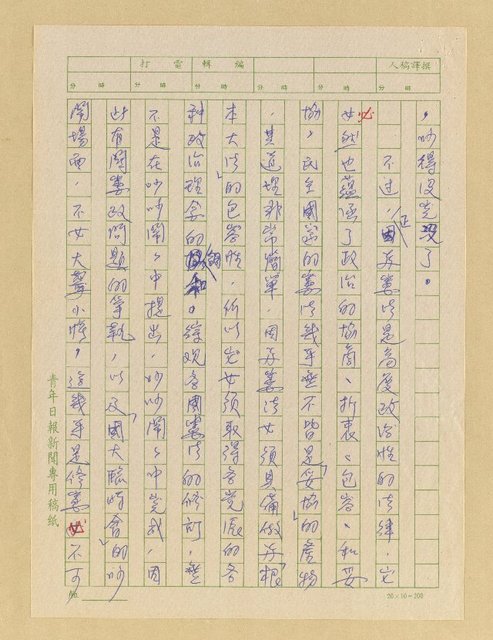 撰譯稿人
編輯
電打
時 分
時 分
時 分
時 分
，吵得沒完沒了。
不過，正因為憲法是高度政治性的法律，它
必然也蘊涵了政治的協商、折衷、包容、和妥
協，民主國家的憲法幾乎無不皆是「妥協的產物」
，其道理非常簡單，因為憲法必須具備做為「根
本大法」的包容性，所以它必須取得各黨派的各
種政治理念的調和。綜觀各國憲法的修訂，無
不是在吵吵鬧鬧中提出，吵吵鬧鬧中完成，因
此有關憲政問題的爭執，以及「國大臨時會」的吵
鬧場面，不必大驚小怪，這幾乎是修憲必不可
青年日報新聞專用稿紙
No.
20×10=200